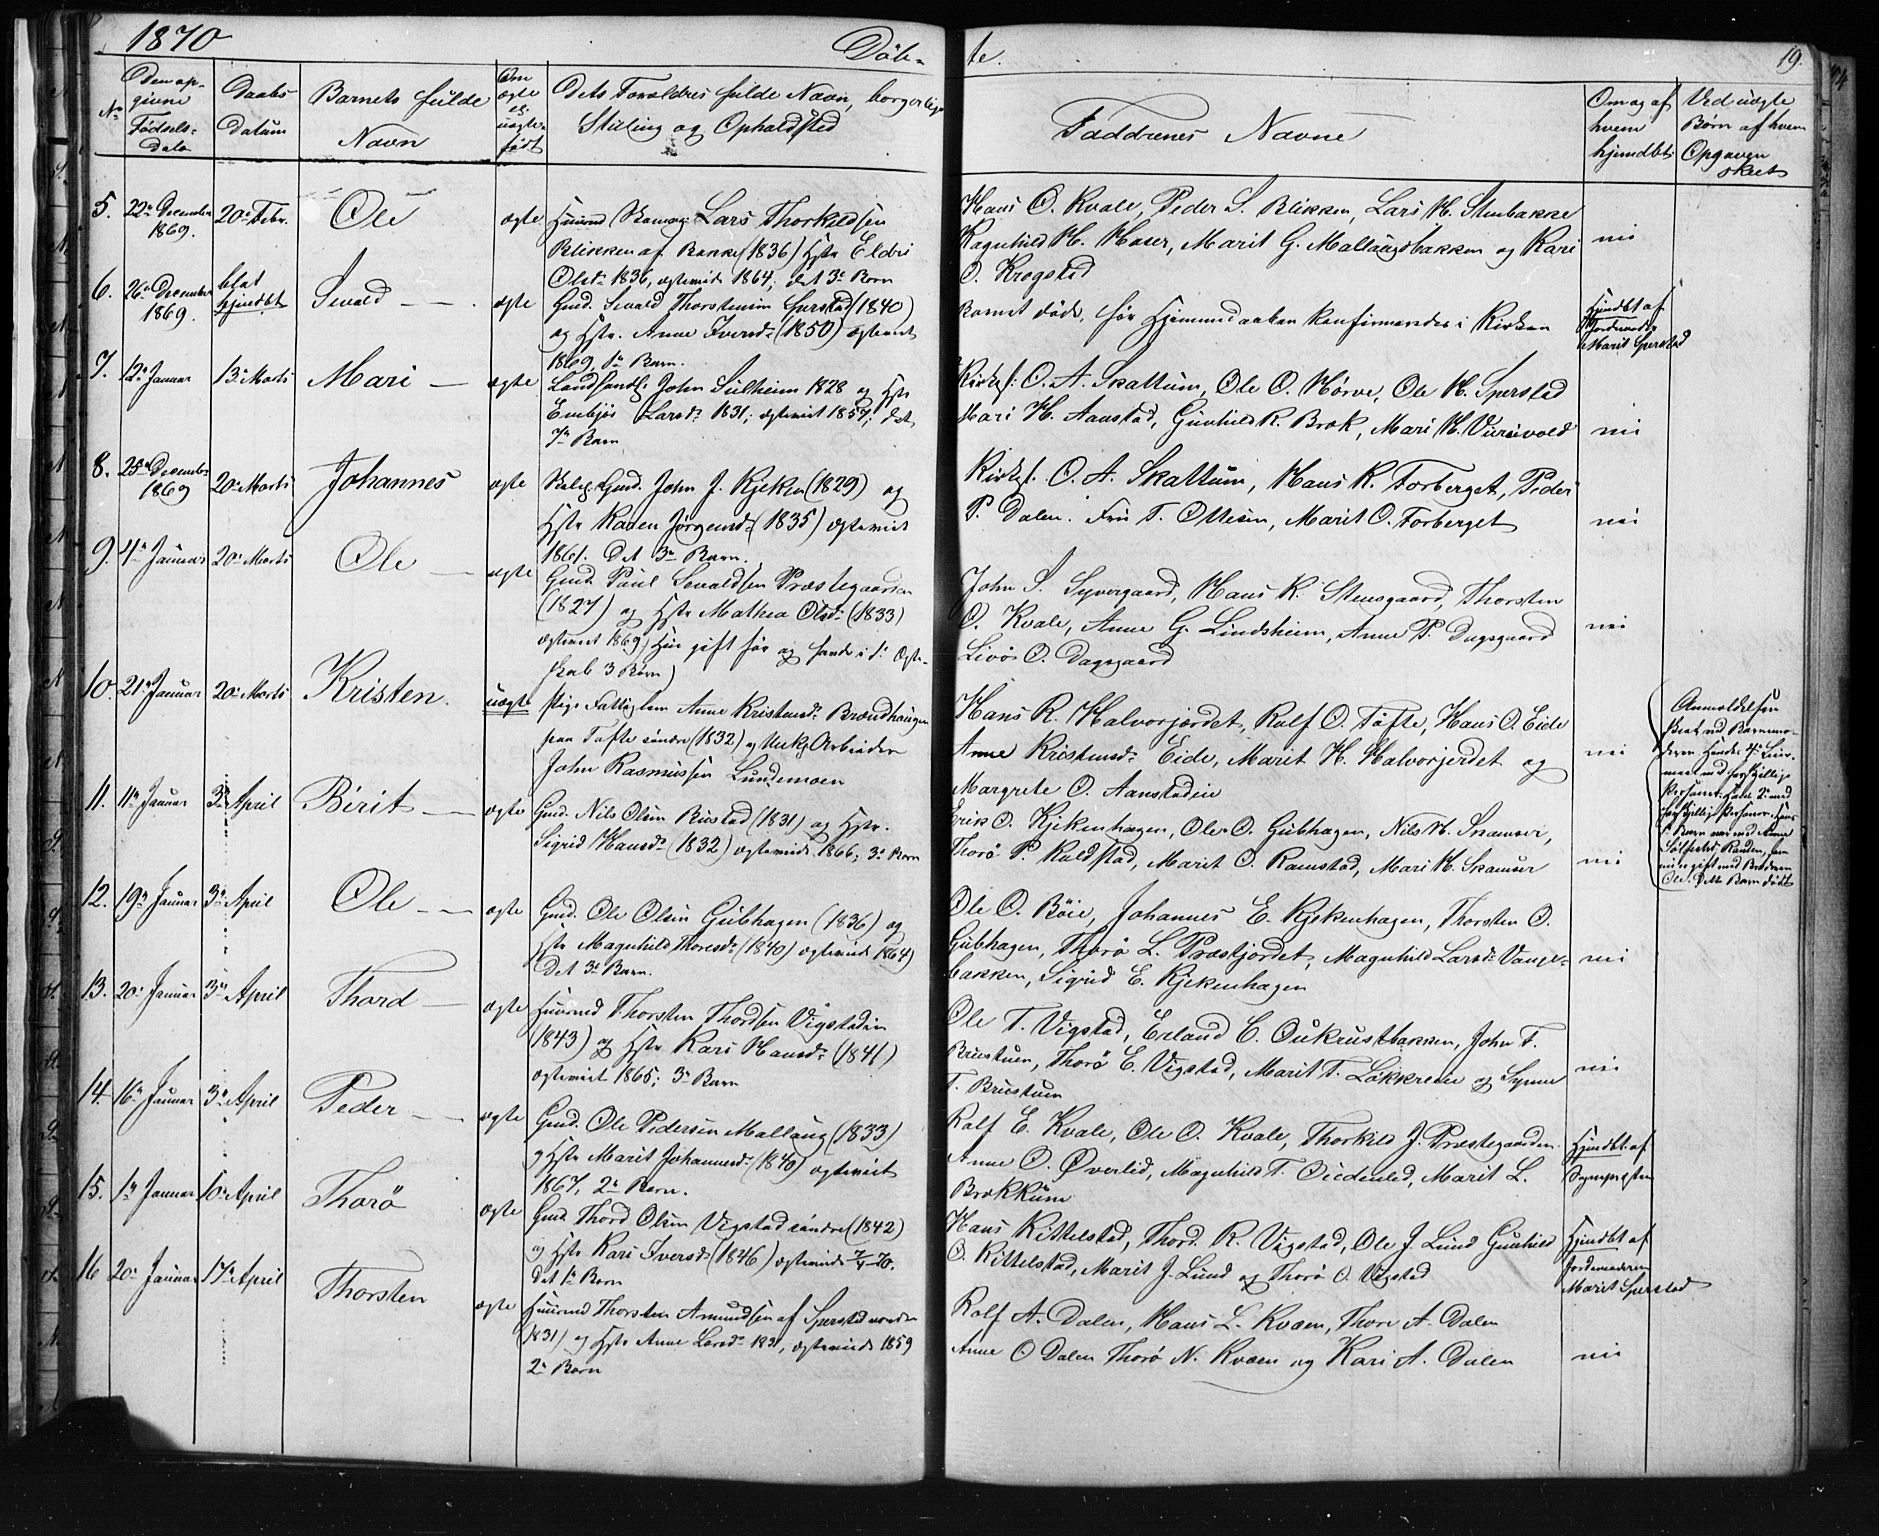 1870
Döb-
te.
19.
No
Den op-
givne
Födsels-
dato
Daabs
Datum
Barnets fulde
Navn
Om
ægte
el.
uægte
födt
Dets Forældres fulde Navn, borgerlige
Stilling og Opholdsted
Faddrenes Navne
Om og af
hvem
hjemdöbt
Ved uægte
Börn af hvem
Opgaven
skeet
5. 22de December
1869.
20de Febr.
Ole
ægte
Lars Thorkildsen
Blikken af Bakke (1836) Hstr Eldri
Olsdr 1836, ægteviede 1864; det 3de Barn
Hans O. Kvale, Peder S. Blikken, Lars H. Stenbakke
Ragnhild H. Moser, Marit G. Mallaugsbakken og Kari
O. Krogstad
nei
6. 26de December
1869.
blot
hjemdöbt
Sevald
ægte
Gmd. Sevald Thorstensen Sperstad (1840)
og Hstr. Anne Iversdr (1850) ægteviet
1869, 1ste Barn.
Barnet döde, för Hjemmedaaben konfirmeredes i Kirken
Hjemdöbt af
Jordemoder
Marit Sperstad
7. 12te Januar
13de Marts
Mari
ægte
Landhandl. John Sulheim 1828 og Hstr
Embjör Larsdr 1831; ægteviet 1857; det
7de Barn
Kirks: O. A. Skattum, Ole O. Hörve, Ole H. Sperstad
Mari H. Aanstad, Gunhild R. Brok, Mari H. Vursivold
nei
8. 25de December
1869
20de Marts
Johannes
ægte
Selvejer Gmd. John J. Kjeken (1829) og
Hstr Karen Jörgensdr (1835) ægteviet
1861. Det 3de Barn.
Kirks: O. A. Skattum, Hans R. Forberget, Peder
P. Dalen. Fru T. Ottesen, Marit O. Forberget
nei
9. 4de Januar
20de Marts
Ole
ægte
Gmd. Paul Sevaldsen Præstegaarden
(1827) og Hstr Mathea Olsdr (1833)
ægteviet 1869) Hun gift för og havde i 1ste Ægte-
skab 3 Börn)
John S. Syvergaard, Hans R. Stensgaard, Thorsten
O. Kvale, Anne G. Lindsheim, Anne P. Dagsgaard
Livö O. Dagsgaard
nei
10. 21de Januar
20de Marts
Kristen.
uægte
Pige Fattiglem Anne Kristensdr Brændhaugen
paa Tofte söndre (1832) og Ungk. Arbeider
John Rasmussen Lundemoen
Hans R. Halvorjordet, Ralf O. Tofte, Hans O. Eide
Anne Kristensdr Eide, Marit H. Halvorjordet og
Margrete O. Aanstadeie
nei
Anmeldelsen
skeet ved Barnemo-
deren. Hendes 4de Leier-
maal med forskjellige
Personer. Hans 2det med
forskjellige Personer. Hans
1ste Barn var med Anne
Ole. Dette Barn dödt
11. 11te Januar
3de April
Berit
ægte
Gmd. Nils Olsen Rustad (1831) og Hstr.
Sigrid Hansdr (1832) ægteviede 1866; 3de Barn
Erik O. Kjekenhagen, Ole O. Gubhagen, Nils H. Skamser,
Thorö P. Koldstad, Marit O. Ramstad, Mari H. Skamser
nei
12. 19de Januar
3de April
Ole
ægte
Gmd. Ole Olsen Gubhagen (1836) og
Hstr Magnhild Thoresdr (1840) ægteviede 1864)
det 3de Barn.
Ole O. Böie, Johannes E. Kjekenhagen, Thorsten O.
Gubhagen, Thorö L. Præstjordet, Magnhild Larsdr Vange-
bakken, Sigrid E. Kjekenhagen
nei
13. 20de Januar
3de April
Thord
ægte
Huusmd Thorsten Thordsen Vigstadeie
(1843) og Hstr Kari Hansdr (1841)
ægteviet 1865; 3de Barn
Ole T. Vigstad, Erland C. Oukrustbakken, John T.
Brustuen, Thorö E. Vigstad, Marit T. Lökkreeie og Synne
T. Brustuen
nei
14. 16de Januar
3de April
Peder
ægte
Gmd. Ole Pedersen Mallaug (1833)
og Hstr Marit Johannesdr (1840) ægteviet
1867, 2det Barn.
Ralf E. Kvale, Ole O. Kvale, Thorkild J. Præstegaarden
Anne O. Överlid, Magnhild T. Oiedenled, Marit L.
Brækkum
Hjemdöbt af
Sognepresten
15. 1ste Januar
10de April
Thorö
ægte
Gmd. Thord Olsen Vigstad söndre (1842)
og Hstr Kari Iversdr (1846) ægteviede 7/4 70.
det 1ste Barn
Hans Kittelstad, Thord. R. Vigstad, Ole J. Lund Gunhild
O. Kittelstad, Marit J. Lund og Thorö O. Vigstad
Hjemdöbt af
Jordemoderen
Marit Sperstad
16 20de Januar
17de April
Thorsten
ægte
Huusmd Thorsten Amundsen af Sperstad nordre
(1831) og Hstr Anne Larsdr 1831, ægteviede 1859
2det Barn
Rolf A. Dalen, Hans L. Kvæen, Thore A. Dalen
Anne O Dalen Thorö N. Kvæen og Kari A. Dalen
nei